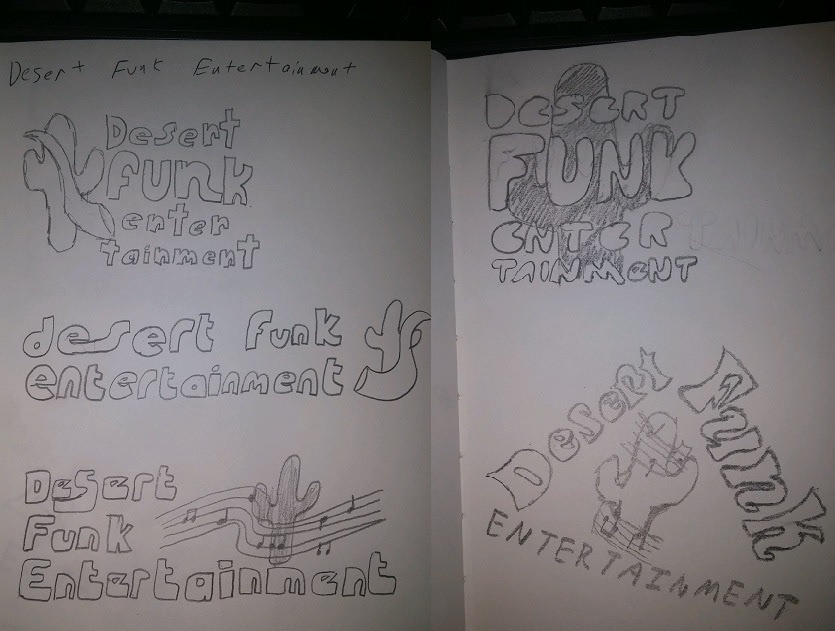 Desert Funk Entertainment
Desert
funk
enter
tainment
desert funk
entertainment
Desert
Funk
Entertainment
DeSERT
FUNK
eNTeR
TAINMeNT
Desert Funk
ENTERTAINMENT